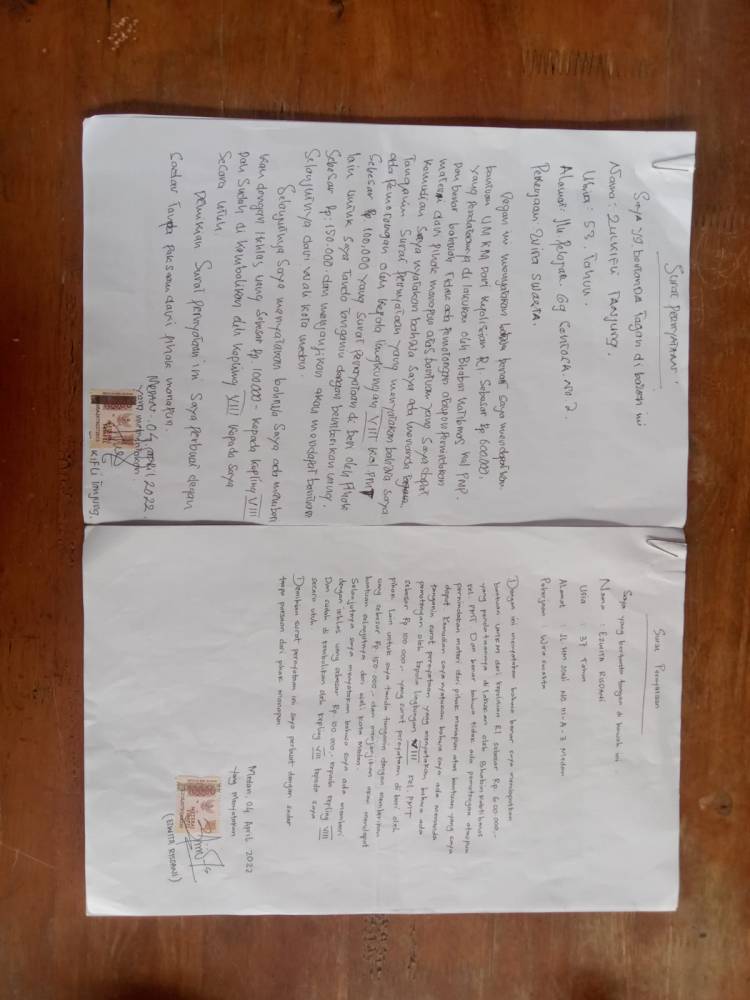 Surat Pernyataan.
Saya yg bertanda tagan di bawah ini
Nama: ZULKIFLI TANJUNG.
Usia: 53. Tahun.
Alamat: Jln Pelopor. Gg CENTOCK NO. 7.
Pekerjaan Wira Swasta.
Degan ini menyatakan bahwa benar saya mendapatkan
bantuan UMKM Dari Kepolisian R.I. Sebasar Rp 600.000.
yang Pendataanya di lakukan oleh Bhabin Katibmas Kel PMP.
Dan benar bahwa Tidak ada Pemotongan ataupun Permintaan
materi dari Pihak manapun atas bantuan yang saya dapat
Kemudian Saya nyatakan bahwa saya ada menanda
Tanganin Surat Pernyataan yang menyatakan bahwa saya
ada Pemotongan oleh Kepala lingkungan VIII Kel PMT
Sebesar Rp 100,000 yang surat Pernyataan di beri oleh Pihak
lain untuk saya Tanda Tanganin dengan memberikan uang.
Sebesar Rp: 150.000. dan menjanjikan akan mendapat bantuan
Selanjutnya dari wali kota medan.
Selanjutnya saya menyatakan bahwa saya ada memberi
kan dengan Ikhlas uang sebesar Rp 100.000 - kepada Kepling VIII
Dan Sudah di kembalikan oleh Kepling VIII Kepada saya
Secara utuh
Demikian Surat pernyataan ini saya perbuat dengan
Sadar Tanpa paksaan dari pihak manapun.
MEDAN. 04. APRIL 2022.
yang menyatakan
KIFLI Tanjung.
Surat Pernyataan
Saya yang bertanda tangan di bawah ini
Nama : ERWITA RISDANI
Usia : 37 Tahun
Alamat : JL HM JONI NO Medan
Pekerjaan : Wira swasta
Dengan ini menyatakan bahwa benar saya mendapatkan
bantuan UMKM dari kepolisian RI sebesar Rp. 600.000,-
yang pendataannya di lakukan oleh Bhabinkamtibmas
kel. PMT Dan benar bahwa tidak ada pemotongan ataupun
permindahan materi dari pihak manapun atas bantuan yang saya
dapat Kemudian saya nyatakan bahwa saya ada menanda
tanganin surat pernyataan yang menyatakan bahwa ada
pemotongan oleh kepala lingkungan VIII kel. PMT
sebesar Rp 100 000,- yang surat pernyataan di beri oleh
pihak lain untuk saya tanda tanganin dengan memberikan
uang sebesar Rp 150 000,- dan menjanjikan akan mendapat
bantuan selanjutnya dari wali kota medan.
Selanjutnya saya menyatakan bahwa saya ada memberi
dengan ikhlas uang sebesar Rp. 100 000,- kepada kepling VIII
Dan sudah di kembalikan oleh kepling VIII kepada saya
secara utuh.
Demikian surat pernyataan ini saya perbuat dengan sadar
tanpa paksaan dari pihak manapun
Medan, 04 April 2022
yang menyatakan
(ERWITA RISDANI)